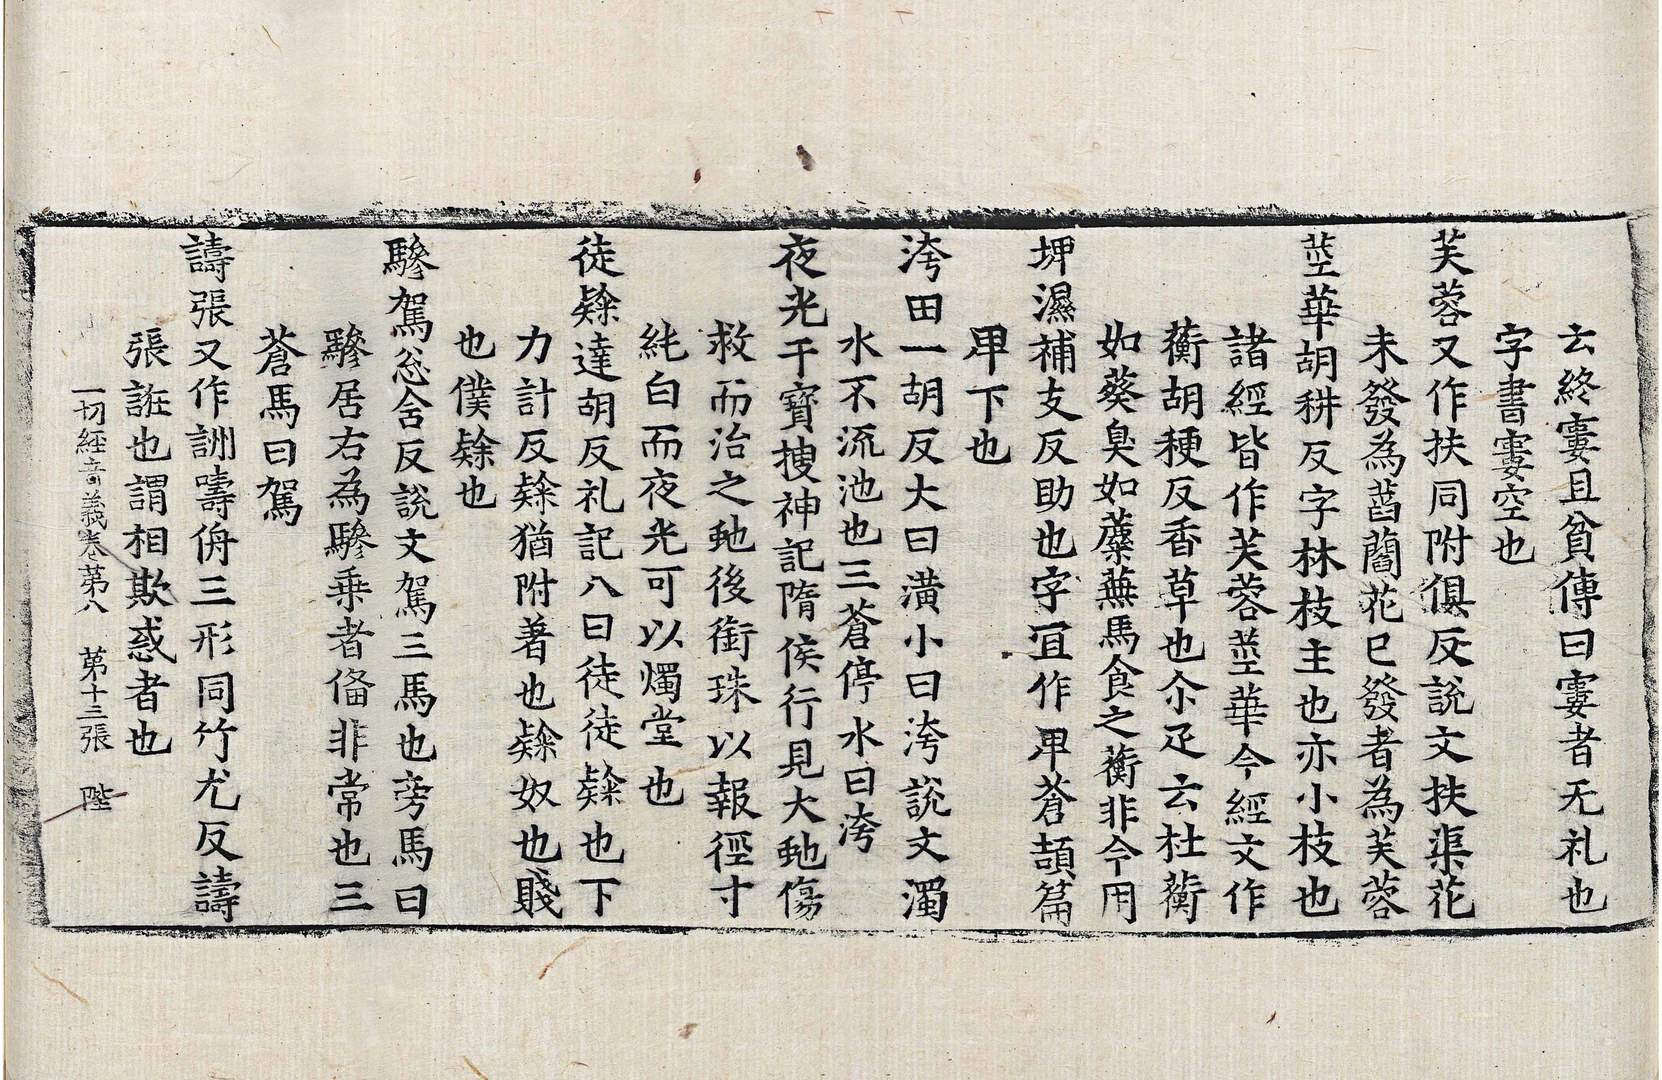 云終寠且貧傳曰寠者无礼也
字書寠空也
芙蓉又作扶同附俱反說文扶渠花
未發為菡䕾花已發者為芙蓉
莖華胡耕反字林枝主也亦小枝也
諸經皆作芙蓉莖華今經文作
蘅胡稉反香草也尒疋云杜蘅
如葵臭如蘪蕪馬食之蘅非今用
埤濕補支反助也字冝作𤰞蒼頡篇
𤰞下也
洿田一胡反大曰潢小曰洿說文濁
水不流池也三蒼停水曰洿
夜光干寶搜神記隋侯行見大虵傷
救而治之虵後銜珠以報徑寸
純白而夜光可以燭堂也
徒𨽻達胡反礼記八曰徒徒𨽻也下
力計反𨽻猶附著也𨽻奴也賤
也僕𨽻也
驂駕忩舍反說文駕三馬也旁馬曰
驂居右為驂乗者俻非常也三
蒼馬曰駕
譸張又作詶嚋侜三形同竹尤反譸
張誑也謂相欺惑者也
一切經音義卷第八 第十三張 陛